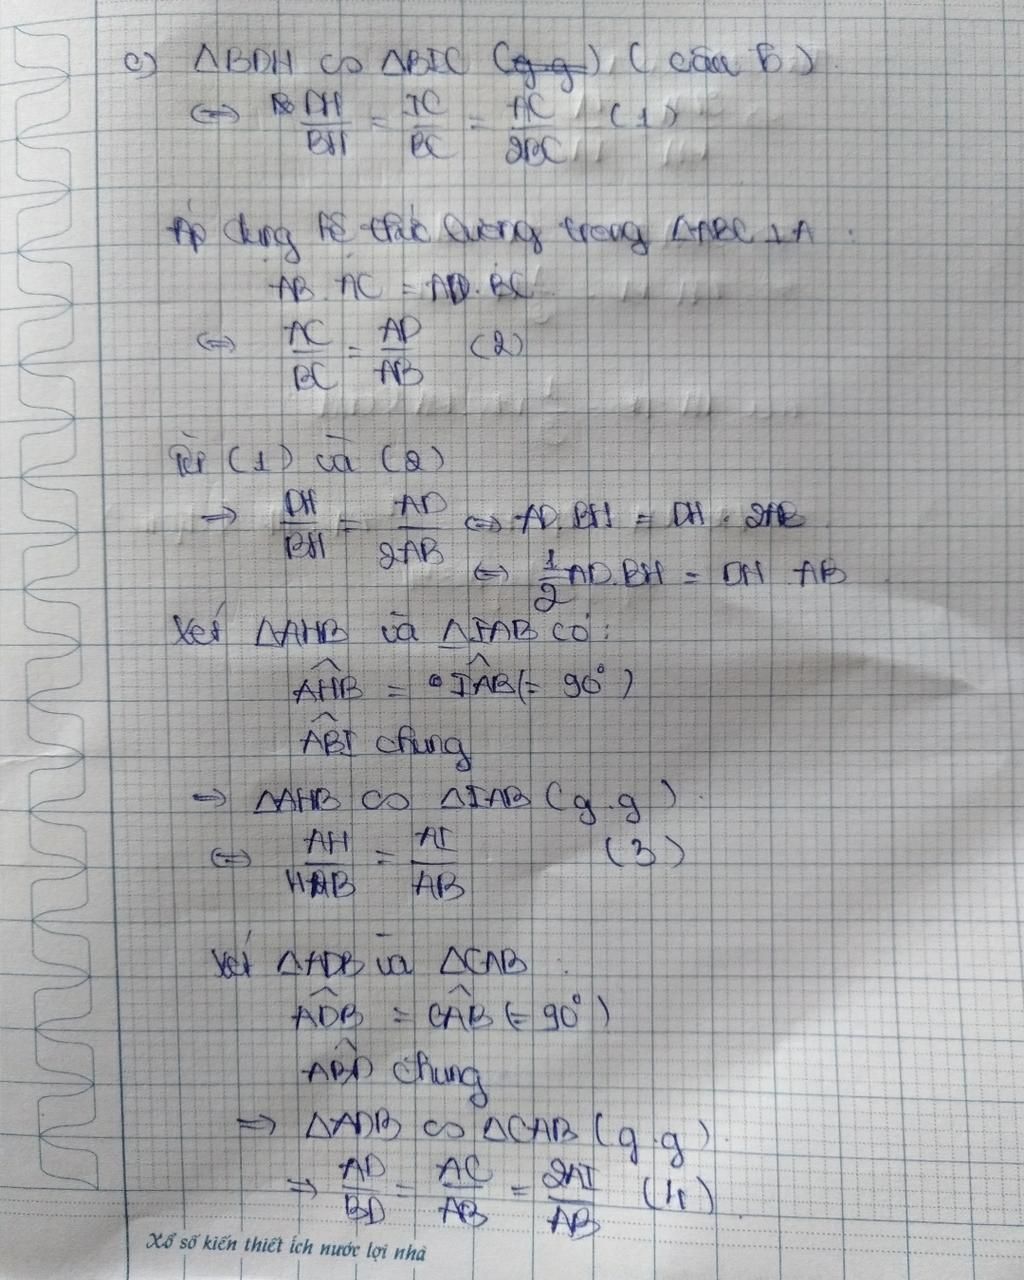 c) △BDH ∽ △BIC (g.g) (câu b)
⇔ DH/BH = IC/BC = AC/2BC (1)
Áp dụng hệ thức lượng trong △ABC ⊥ A :
AB . AC = AD . BC
⇔ AC/BC = AD/AB (2)
Từ (1) và (2)
⇒ DH/BH = AD/2AB ⇔ AD.BH = DH . 2AB
⇔ 1/2 AD.BH = DH AB
Xét △AHB và △IAB có :
AHB = IAB (= 90°)
ABI chung
⇒ △AHB ∽ △IAB (g.g)
⇔ AH/HB = AI/AB (3)
Xét △ADB và △CAB :
ADB = CAB (= 90°)
ABD chung
⇒ △ADB ∽ △CAB (g.g)
⇒ AD/BD = AC/AB = 2AI/AB (4)
Xổ số kiến thiết ích nước lợi nhà